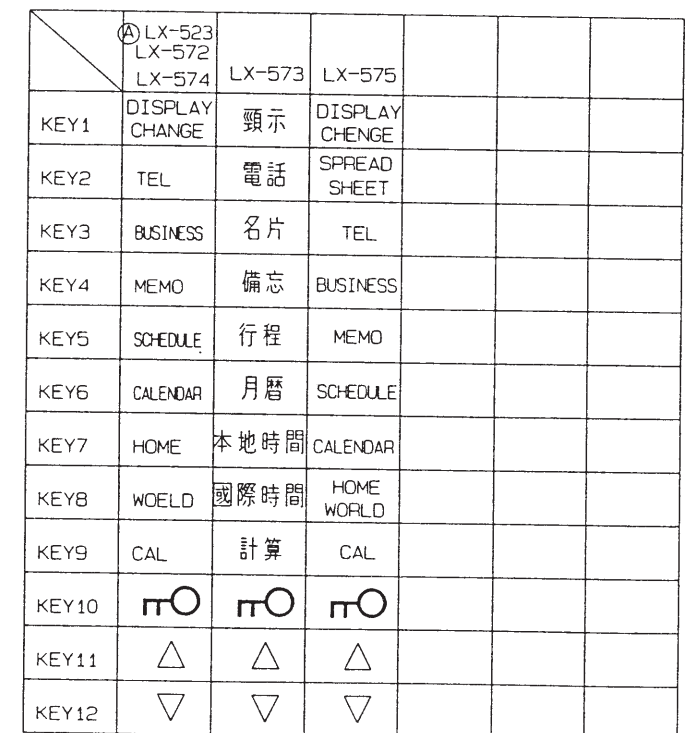 Ⓐ LX-523
LX-572
LX-574 LX-573 LX-575
KEY1 DISPLAY CHANGE 頸示 DISPLAY CHENGE
KEY2 TEL 電話 SPREAD SHEET
KEY3 BUSINESS 名片 TEL
KEY4 MEMO 備忘 BUSINESS
KEY5 SCHEDULE 行程 MEMO
KEY6 CALENDAR 月曆 SCHEDULE
KEY7 HOME 本地時間 CALENDAR
KEY8 WOELD 國際時間 HOME WORLD
KEY9 CAL 計算 CAL
KEY10
KEY11 △ △ △
KEY12 ▽ ▽ ▽